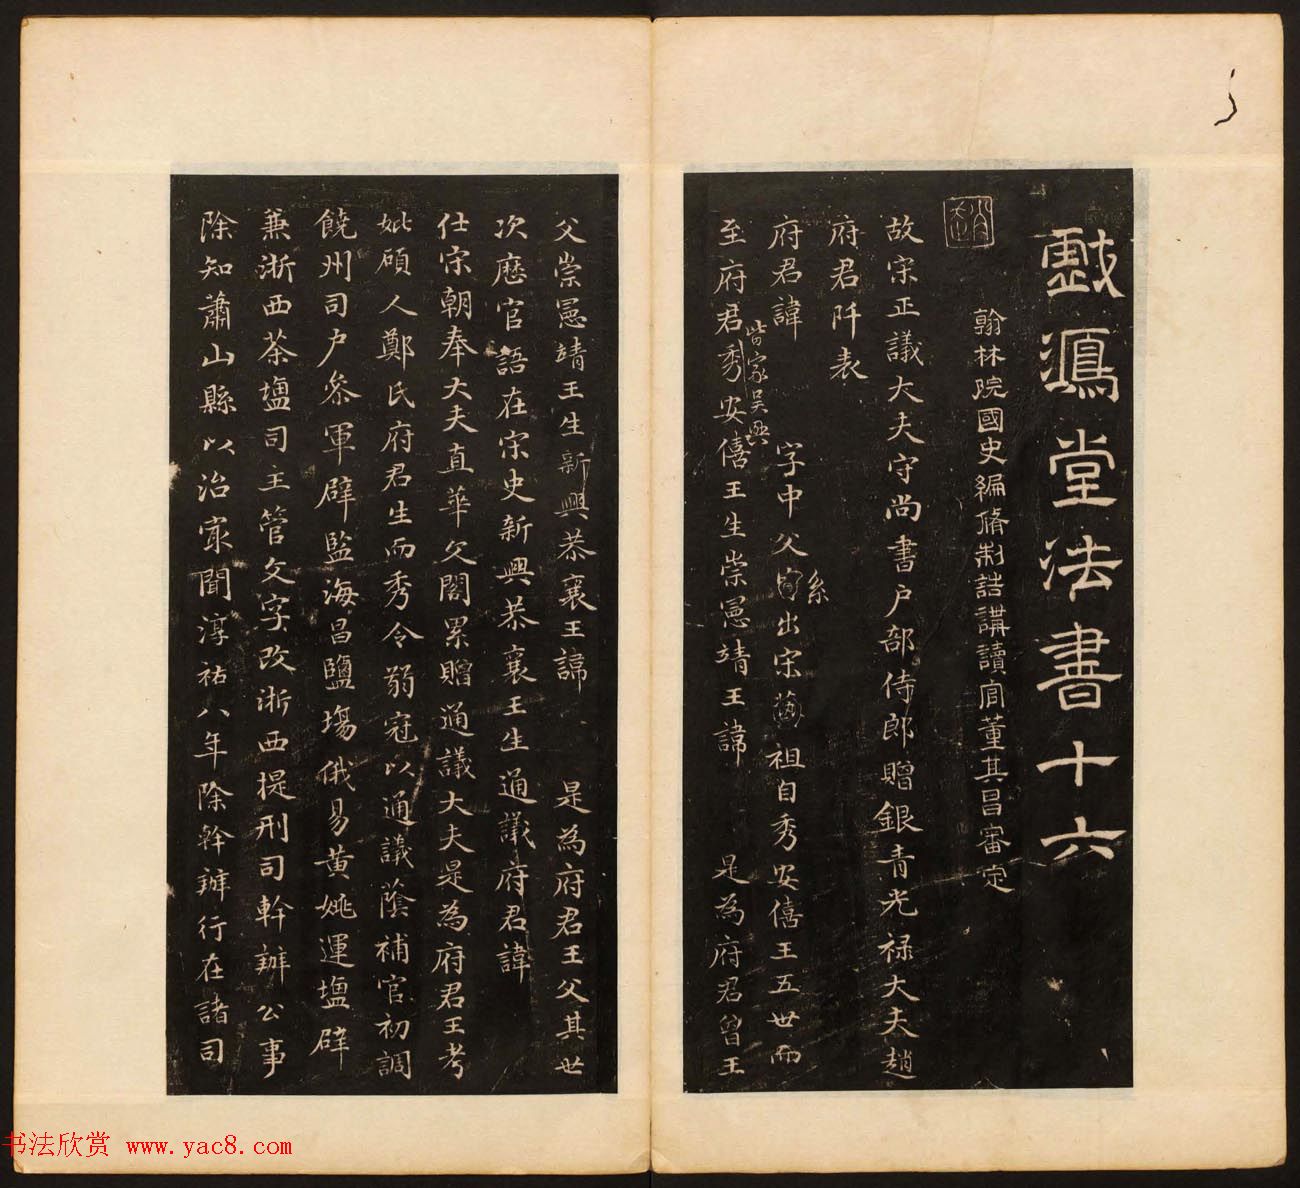 戲鴻堂法書十六
翰林院國史編脩制誥講讀官董其昌審定
故宋正議大夫守尚書户部侍郎贈銀青光禄大夫趙
府君阡表
府君諱 字中父 出宋 祖自秀安僖王五世而
系
皆家吴興
至府君秀安僖王生崇憲靖王諱 是為府君曾王
父崇憲靖王生新興恭襄王諱 是為府君王父其世
次歷官語在宋史新興恭襄王生通議府君諱
仕宋朝奉大夫直華文閣累贈通議大夫是為府君王考
妣碩人鄭氏府君生而秀令弱冠以通議蔭補官初調
饒州司户參軍辟監海昌鹽場俄易黄姚運塩辟
兼浙西茶塩司主管文字改浙西提刑司幹辦公事
除知蕭山縣以治㝡聞淳祐八年除幹辦行在諸司
书法欣赏 www.yac8.com